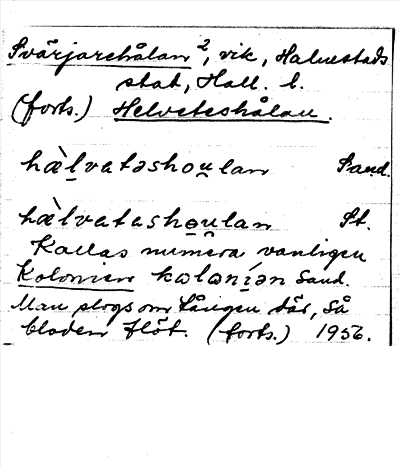 Svärjarehålan 2, vik, Halmstads
stad, Hall. l.
(forts.) Helveteshålan.
hæ̀l̠vatəshou̯lan Sand.
hæ̀lvatasho̤ṳlan St.
Kallas numera vanligen
Kolonien kɷlɷní̠ən Sand.
Man slogs om tången där, så
bloden flöt. (forts.) 1956.